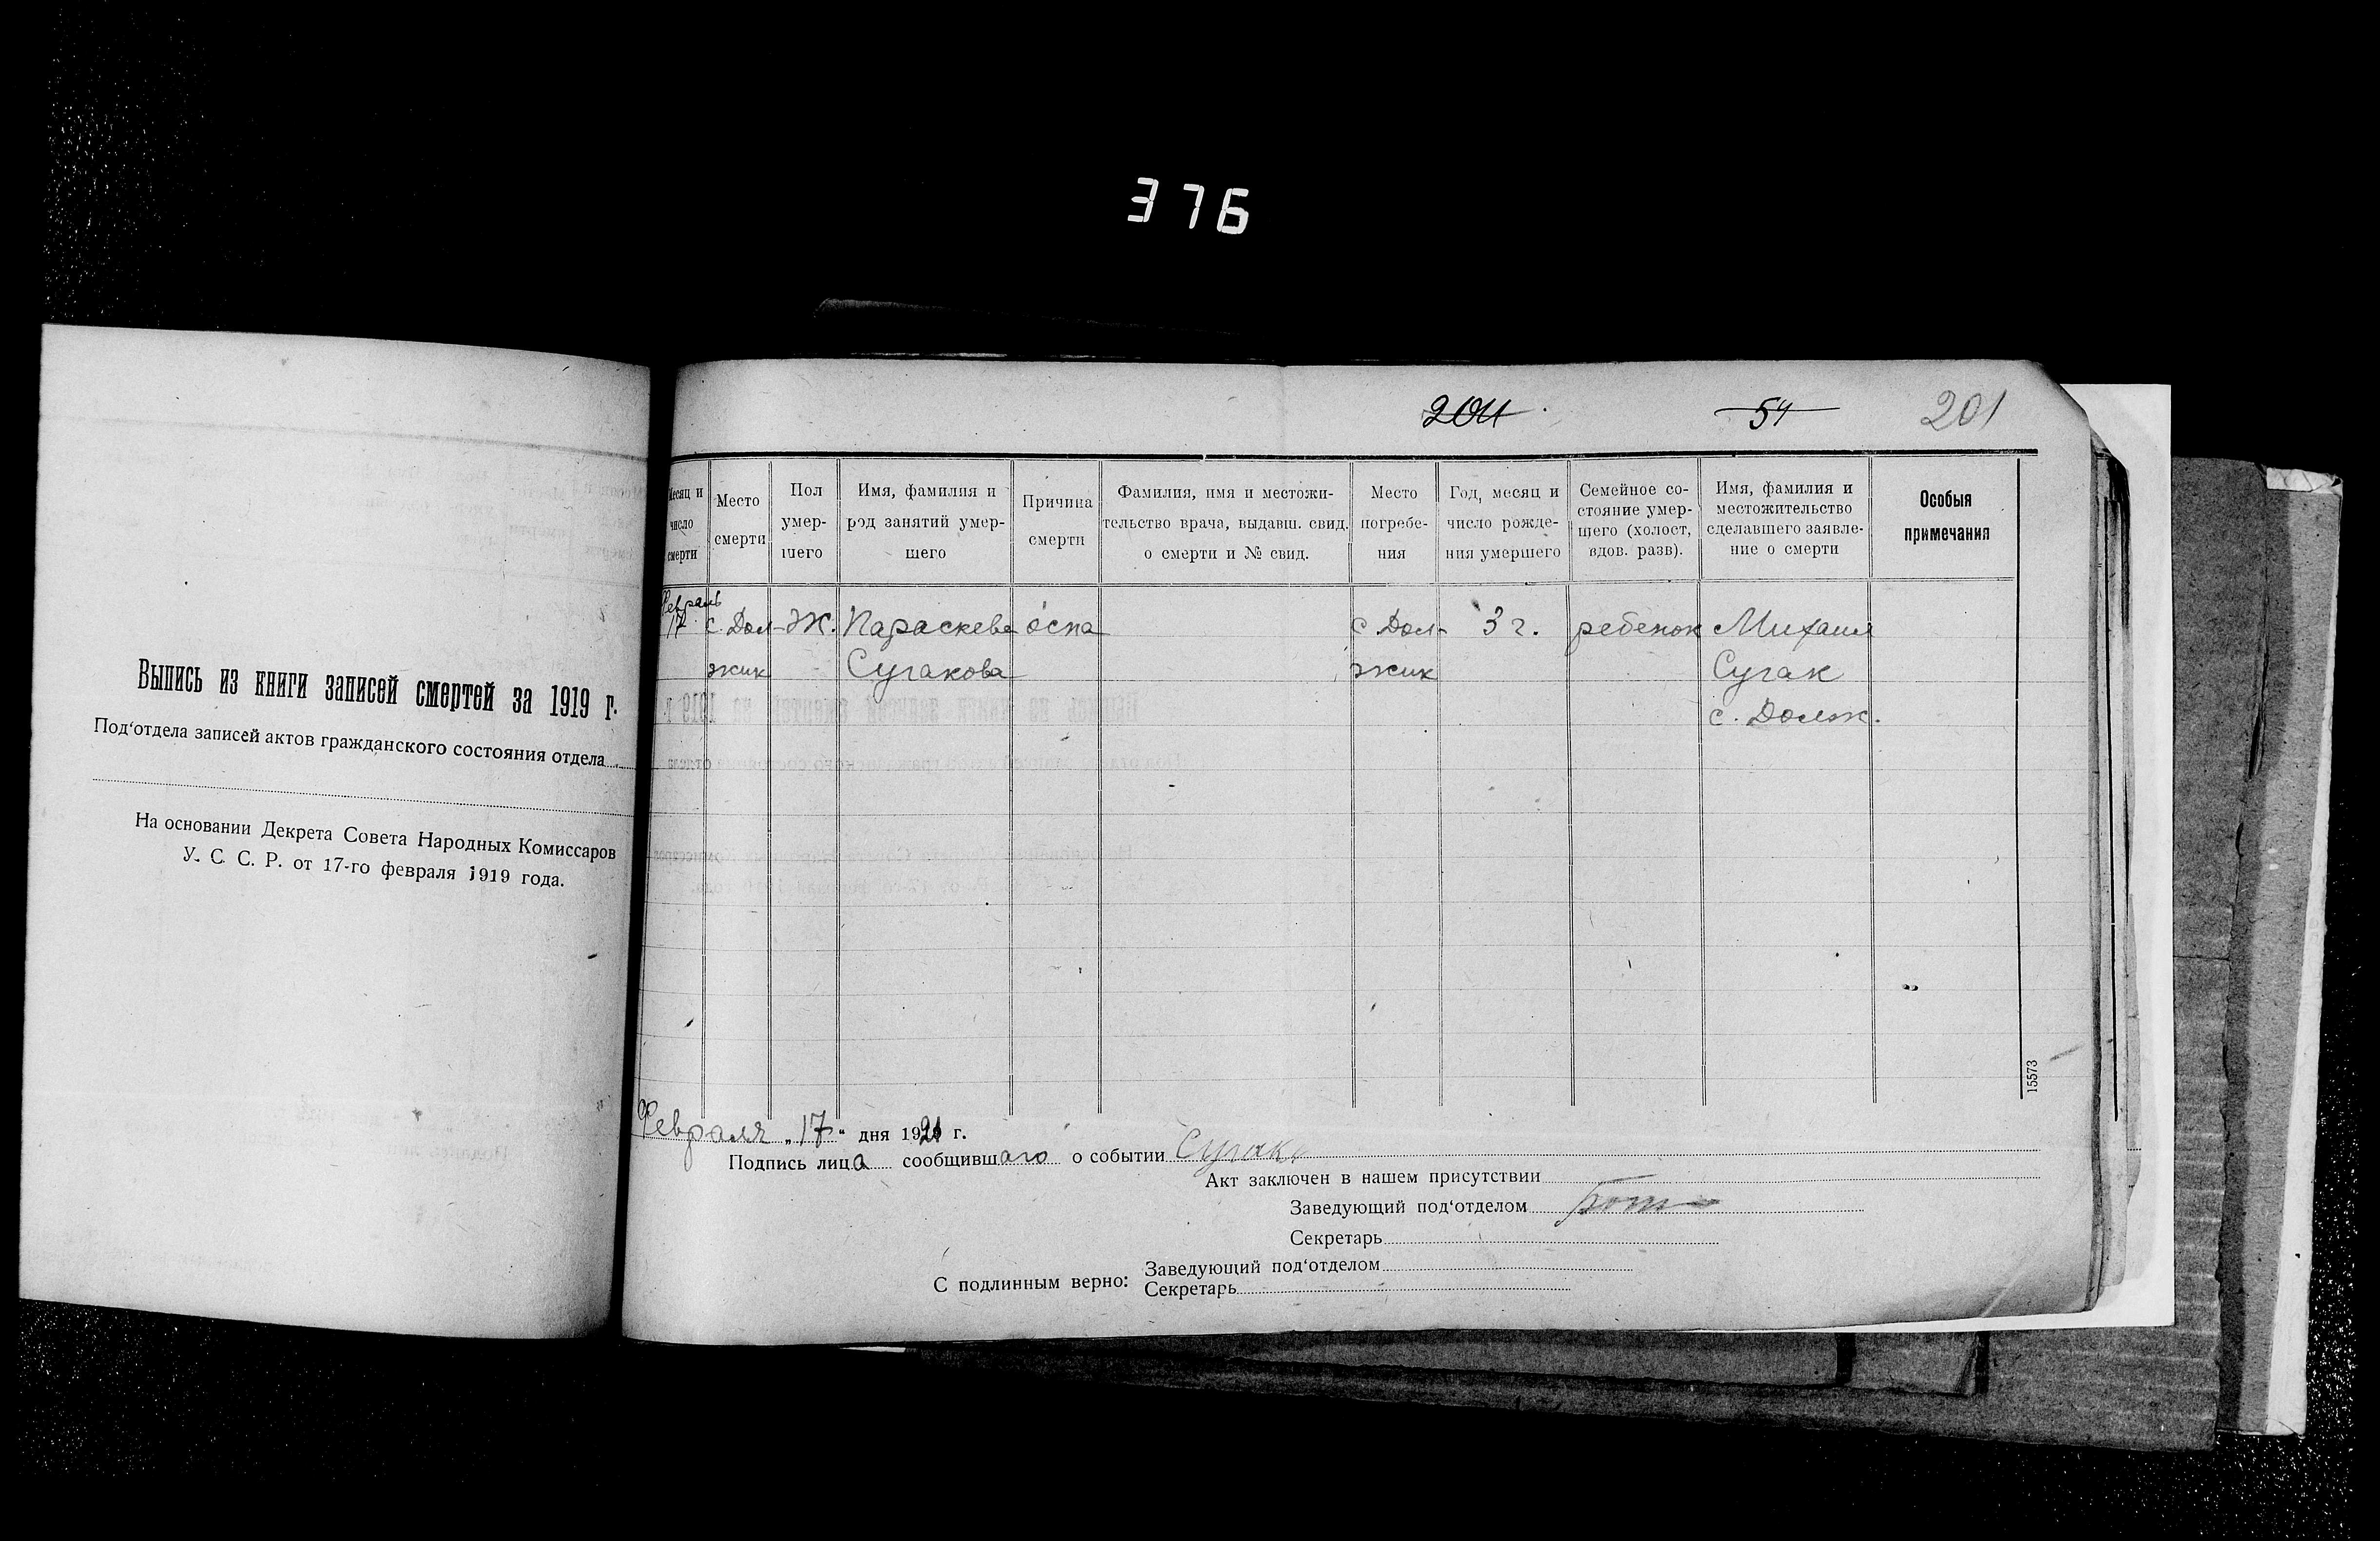 376
204 54 201
Выпись из книги записей смертей за 1919 г.
Под'отдела записей актов гражданского состояния отдела
На основании Декрета Совета Народных Комиссаров
У. С. С. Р. от 17-го февраля 1919 года.
Месяц и число смерти
Место смерти
Пол умер-шего
Имя, фамилия и род занятий умер-шего
Причина смерти
Фамилия, имя и местожи-тельство врача, выдавш. свид. о смерти и № свид.
Место погребе-ния
Год, месяц и число рожде-ния умершего
Семейное со-стояние умер-шего (холост, вдов. разв).
Имя, фамилия и местожительство сделавшего заявле-ние о смерти
Особыя примечания
Февраль
17 с. Дол- Ж. Параскева оспа с Дол- 3 г. ребенок Михаил
жик Сугакова жик Сугак
с. Долж.
15573
Февраля „17“ дня 1921 г.
Подпись лица сообщившаго о событии Сугак
Акт заключен в нашем присутствии
Заведующий под'отделом
Секретарь
С подлинным верно: Заведующий под'отделом
Секретарь